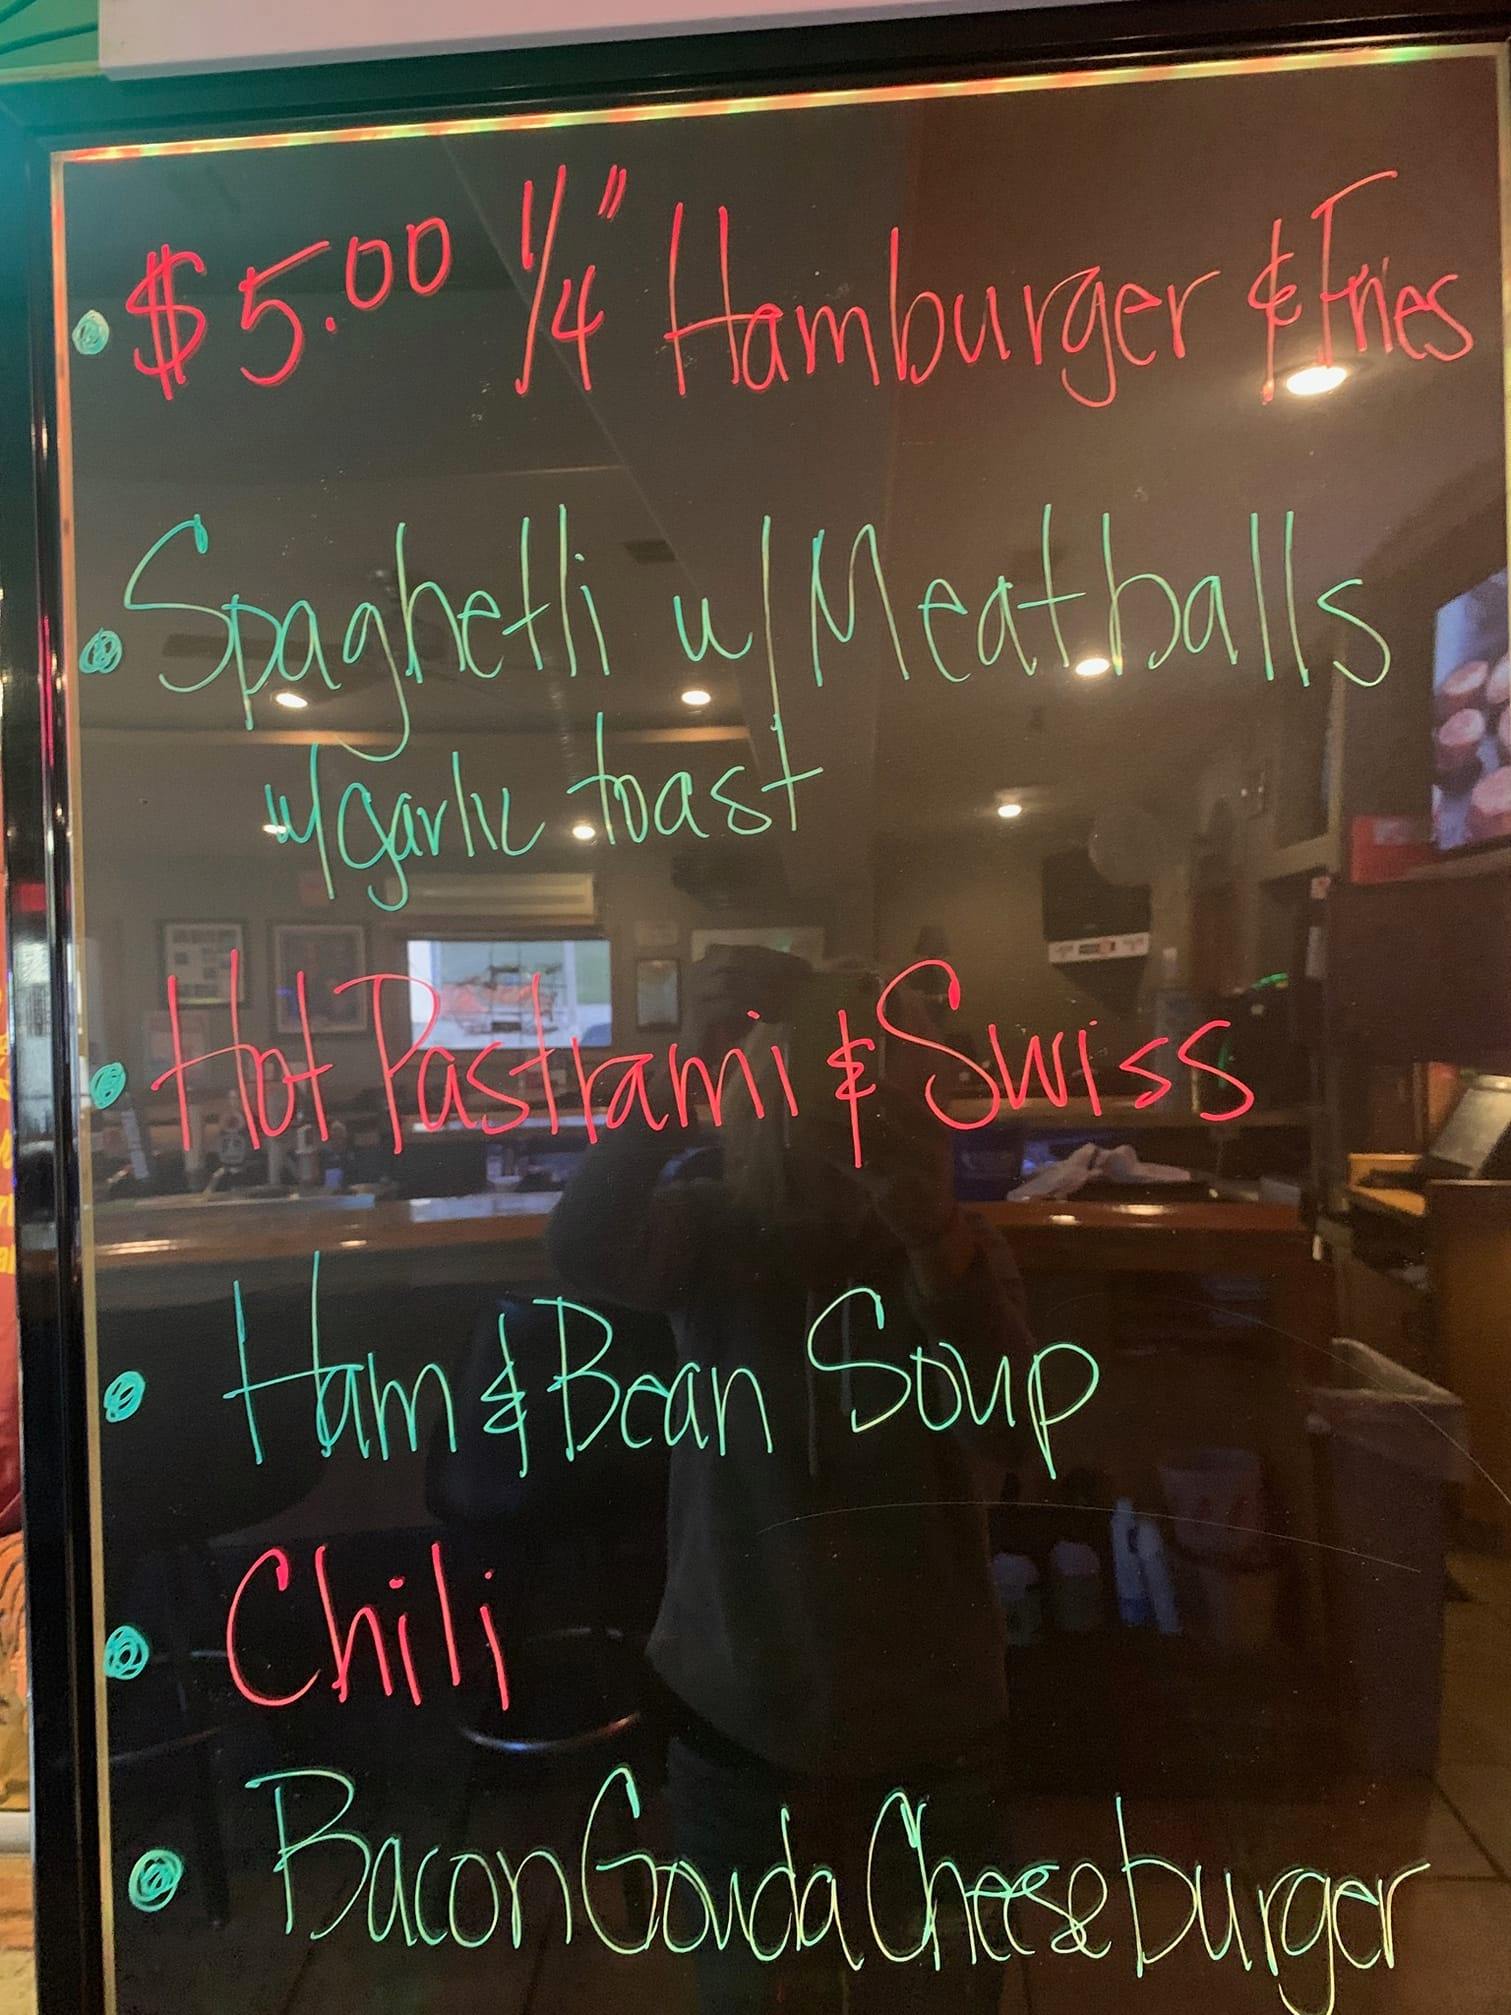 • $5.00 1/4" Hamburger & Fries
• Spaghetti w/ Meatballs
w/ garlic toast
• Hot Pastrami & Swiss
• Ham & Bean Soup
• Chili
• Bacon Gouda Cheeseburger